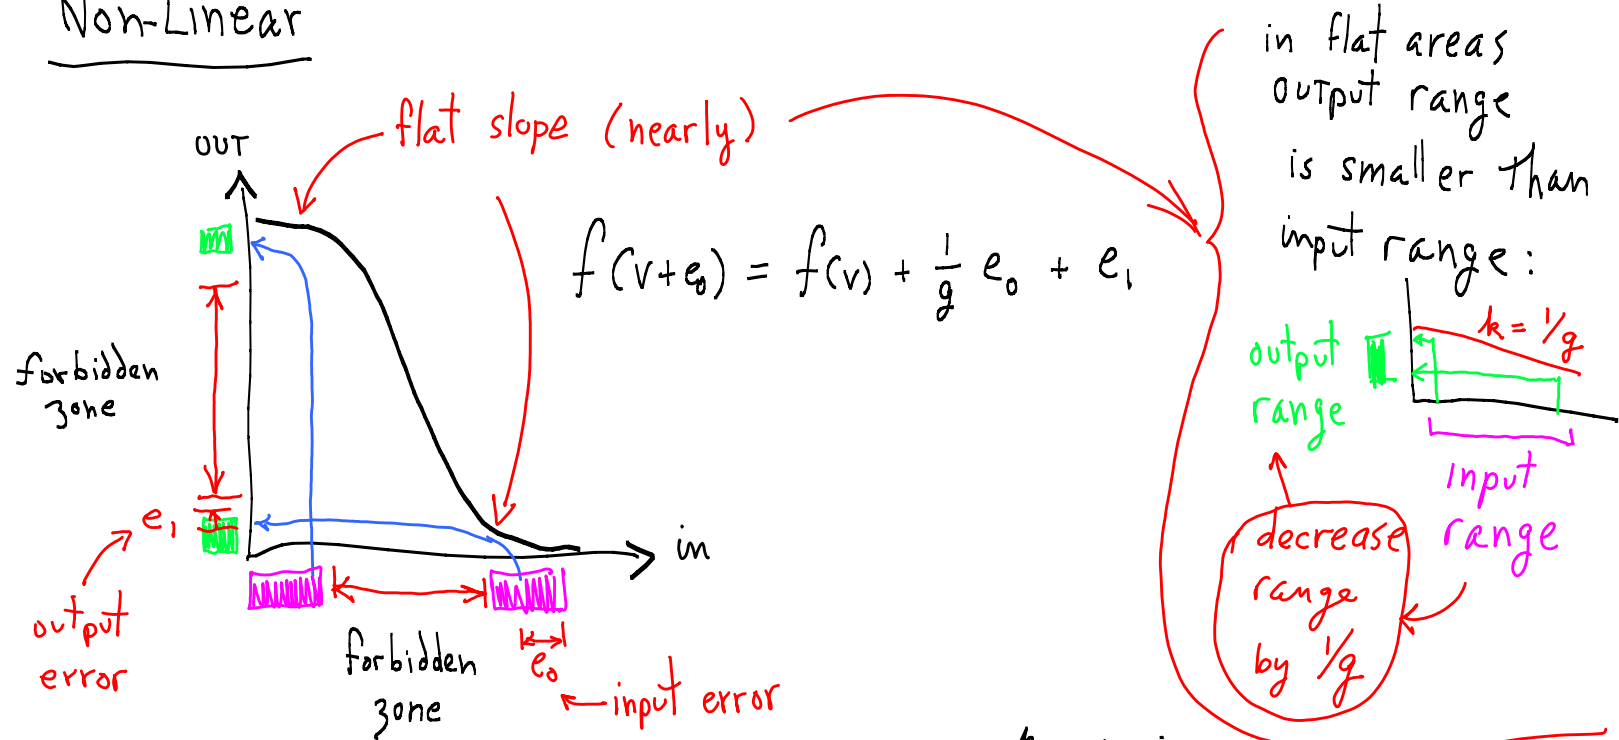 Non-Linear
OUT
flat slope (nearly)
f(v+e₀) = f(v) + 1/g e₀ + e₁
forbidden
zone
e₁
output
error
in
forbidden
zone
e₀
input error
in flat areas
output range
is smaller than
input range:
k = 1/g
output
range
input
range
decrease
range
by 1/g